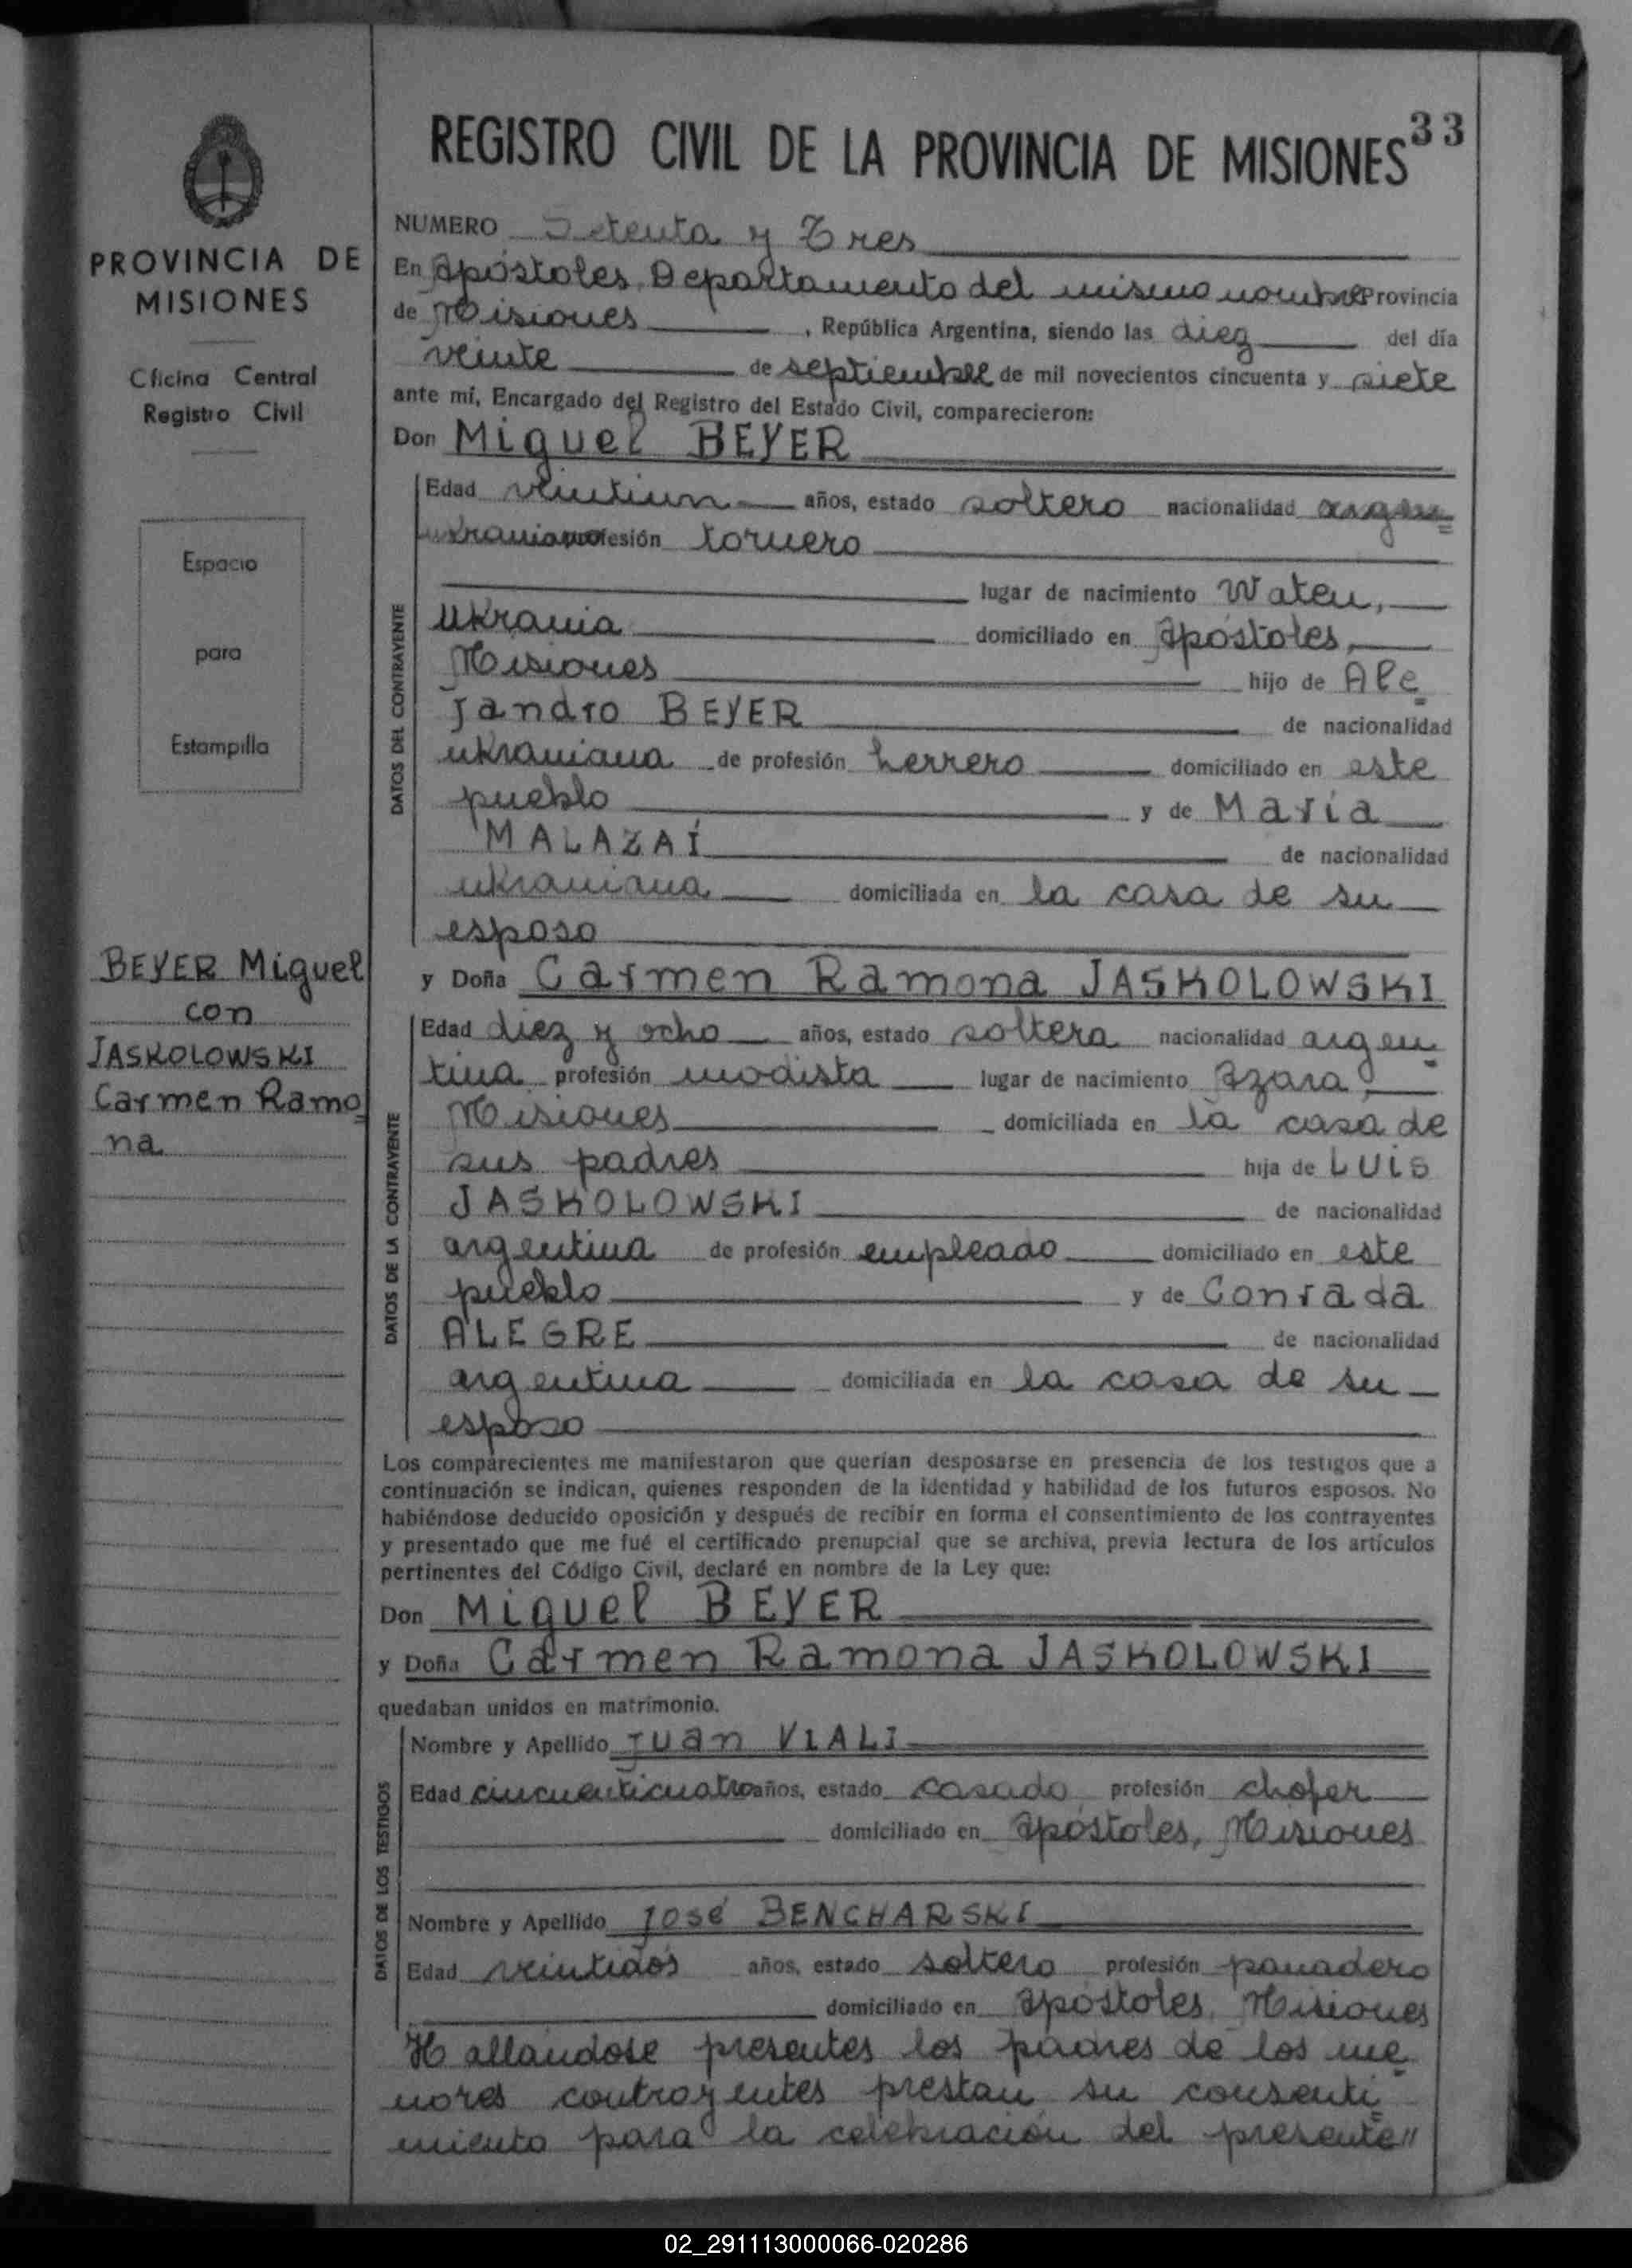 REGISTRO CIVIL DE LA PROVINCIA DE MISIONES 33
PROVINCIA DE
MISIONES
Oficina Central
Registro Civil
Espacio
para
Estampilla
BEYER Miguel
con
JASKOLOWSKI
Carmen Ramo
na
NUMERO Setenta y Tres
En Apóstoles, Departamento del mismo nombre Provincia
de Misiones , República Argentina, siendo las diez del día
veinte de septiembre de mil novecientos cincuenta y siete
ante mí, Encargado del Registro del Estado Civil, comparecieron:
Don Miguel BEYER
DATOS DEL CONTRAYENTE
Edad veintiun años, estado soltero nacionalidad argen=
ukraniano profesión tornero
lugar de nacimiento Wateu,
Ukrania domiciliado en Apóstoles,
Misiones hijo de Ale
jandro BEYER de nacionalidad
ukraniana de profesión herrero domiciliado en este
pueblo y de María
MALAZAÍ de nacionalidad
ukraniana domiciliada en la casa de su
esposo
y Doña Carmen Ramona JASKOLOWSKI
DATOS DE LA CONTRAYENTE
Edad diez y ocho años, estado soltera nacionalidad argen-
tina profesión modista lugar de nacimiento Azara,
Misiones domiciliada en la casa de
sus padres hija de LUIS
JASKOLOWSKI de nacionalidad
argentina de profesión empleado domiciliado en este
pueblo y de Conrada
ALEGRE de nacionalidad
argentina domiciliada en la casa de su
esposo
Los comparecientes me manifestaron que querían desposarse en presencia de los testigos que a
continuación se indican, quienes responden de la identidad y habilidad de los futuros esposos. No
habiéndose deducido oposición y después de recibir en forma el consentimiento de los contrayentes
y presentado que me fué el certificado prenupcial que se archiva, previa lectura de los artículos
pertinentes del Código Civil, declaré en nombre de la Ley que:
Don Miguel BEYER
y Doña Carmen Ramona JASKOLOWSKI
quedaban unidos en matrimonio.
DATOS DE LOS TESTIGOS
Nombre y Apellido Juan VIALI
Edad cincuenticuatro años, estado casado profesión chofer
domiciliado en Apóstoles, Misiones
Nombre y Apellido José BENCHARSKI
Edad veintidós años, estado soltero profesión panadero
domiciliado en Apóstoles, Misiones
Hallándose presentes los padres de los me
nores contrayentes prestan su consenti=
miento para la celebración del presente//
02_291113000066-020286